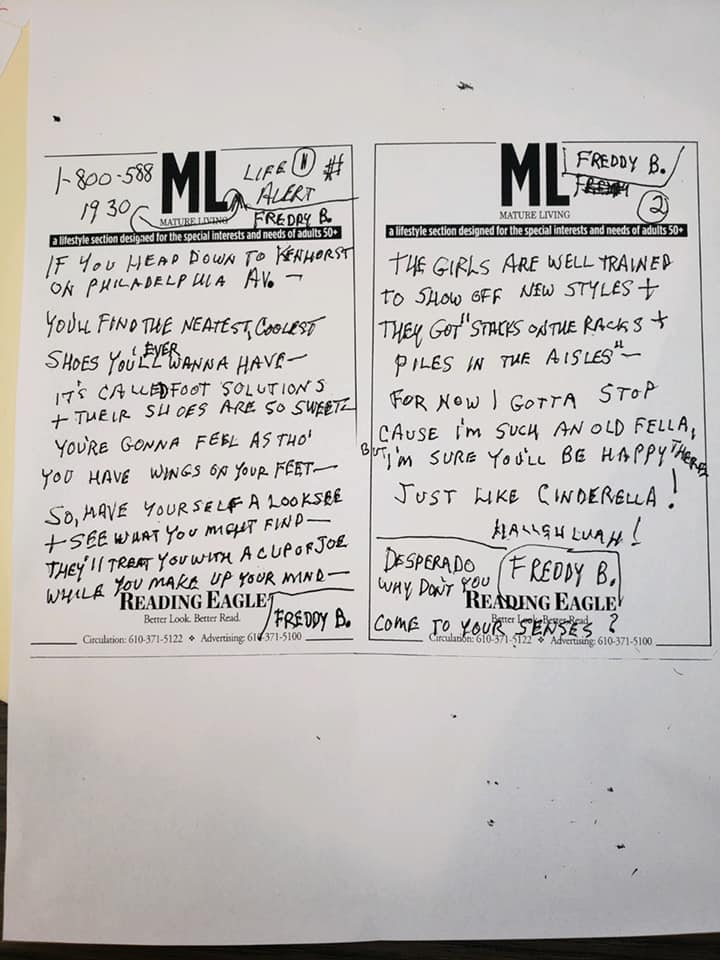 1-800-588
1930
ML
LIFE
#
ALERT
MATURE LIVING
FREDDY B.
a lifestyle section designed for the special interests and needs of adults 50+
IF YOU HEAD DOWN TO KENHORST
ON PHILADELPHIA AV. —
YOU'LL FIND THE NEATEST, COOLEST
SHOES YOU'LL EVER WANNA HAVE —
IT'S CALLED FOOT SOLUTIONS
+ THEIR SHOES ARE SO SWEET
YOU'RE GONNA FEEL AS THO'
YOU HAVE WINGS ON YOUR FEET —
SO, HAVE YOURSELF A LOOKSEE
+ SEE WHAT YOU MIGHT FIND —
THEY'll TREAT YOU WITH A CUP OF JOE
WHILE YOU MAKE UP YOUR MIND —
READING EAGLE
Better Look. Better Read.
FREDDY B.
Circulation: 610-371-5122 ❖ Advertising: 610-371-5100
ML
FREDDY B.
MATURE LIVING
2
a lifestyle section designed for the special interests and needs of adults 50+
THE GIRLS ARE WELL TRAINED
TO SHOW OFF NEW STYLES +
THEY GOT "STACKS ON THE RACKS +
PILES IN THE AISLES" —
FOR NOW I GOTTA STOP
CAUSE I'M SUCH AN OLD FELLA,
BUT I'M SURE YOU'LL BE HAPPY THERE
JUST LIKE CINDERELLA!
HALLEHLUAH!
DESPERADO
WHY DON'T YOU
FREDDY B.
READING EAGLE
Better Look. Better Read.
COME TO YOUR SENSES?
Circulation: 610-371-5122 ❖ Advertising: 610-371-5100